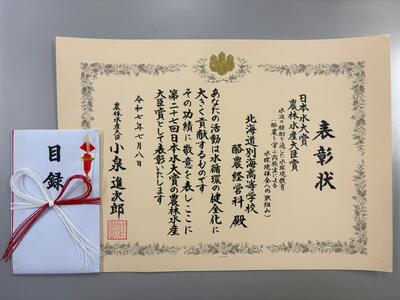 表彰状
日本水大賞
農林水産大臣賞
水沼の植樹を通した水環境教育
(酪農を学ぶ高校生による
水環境保全への取組み)
北海道別海高等学校
酪農経営科 殿
あなたの活動は水循環の健全化に
大きく貢献するものです
その功績に敬意を表し、ここに
第二十七回日本水大賞の農林水産
大臣賞として表彰いたします
令和七年七月八日
農林水産大臣 小泉進次郎
目録